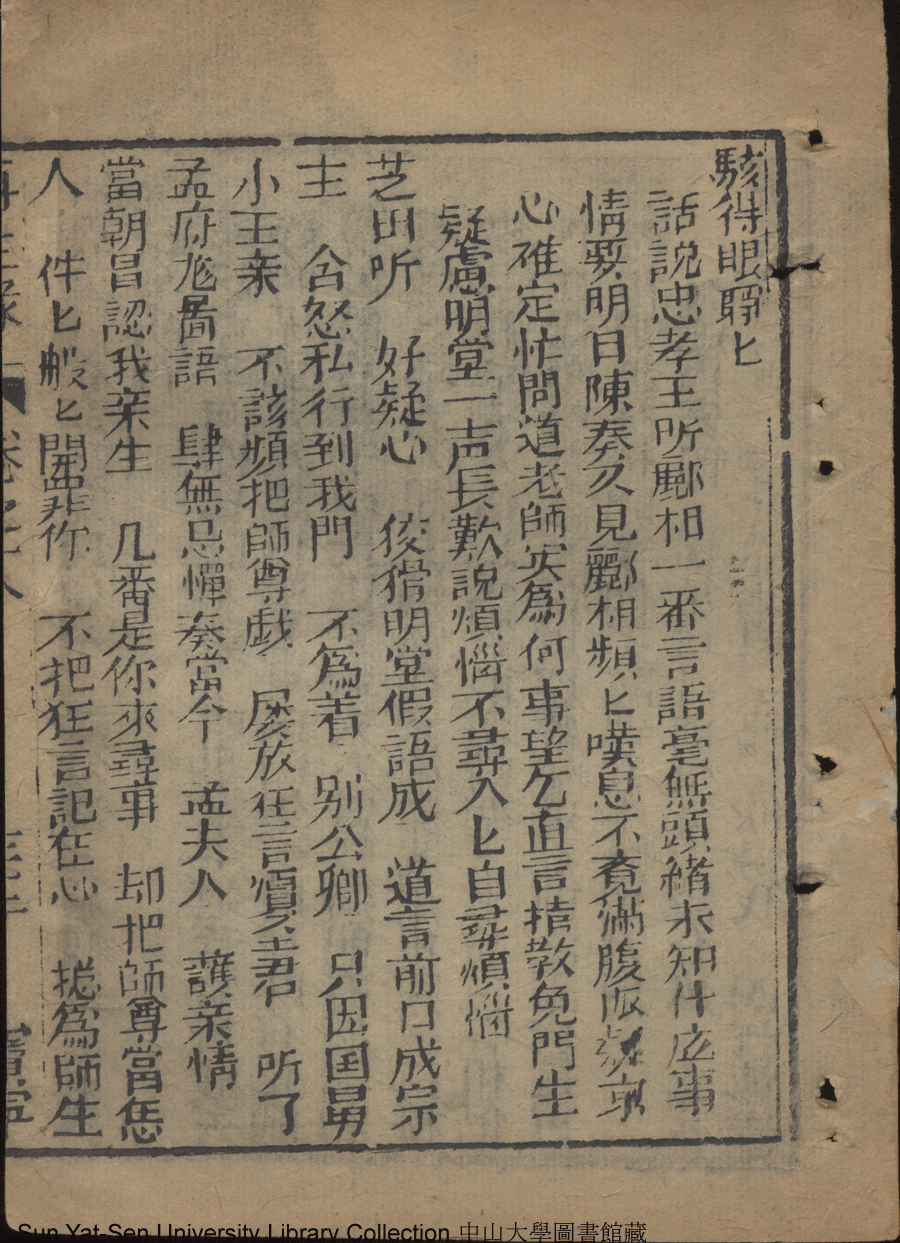 駭得眼睜匕
話說忠孝王听酈相一番言語毫無頭緒未知什应事
情要明日陳奏又見酈相頻匕嘆息不竟滿腹
心碓定忙問道老師实為何事望乞直言指教免門生
疑慮明堂一声長歎說煩惱不尋人匕自尋煩惱
芝田听 好疑心 狡猾明堂假語成 道言前日成宗
主 含怒私行到我門 不為着 別公卿 只因国舅
小王亲 不該頻把師尊戯 屡放狂言瀆主君 听了
孟府尨啚語 肆無忌憚奏當今 孟夫人 護亲情
當朝冒認我亲生 几番是你來尋事 却把師尊當怎
人 件匕般匕開罪你 不把狂言記在心 揔為師生
卷之
Sun Yat-Sen University Library Collection 中山大學圖書館藏